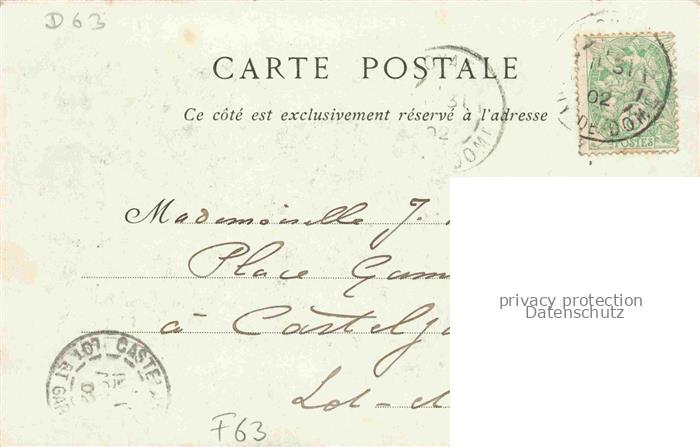 D63
CARTE POSTALE
Ce côté est exclusivement réservé à l'adresse
31
02
DOME
31
02
DE-DOME
POSTES
Mademoiselle J.
Place
à Castelj
Lot-
privacy protection
Datenschutz
107 CASTE
F63